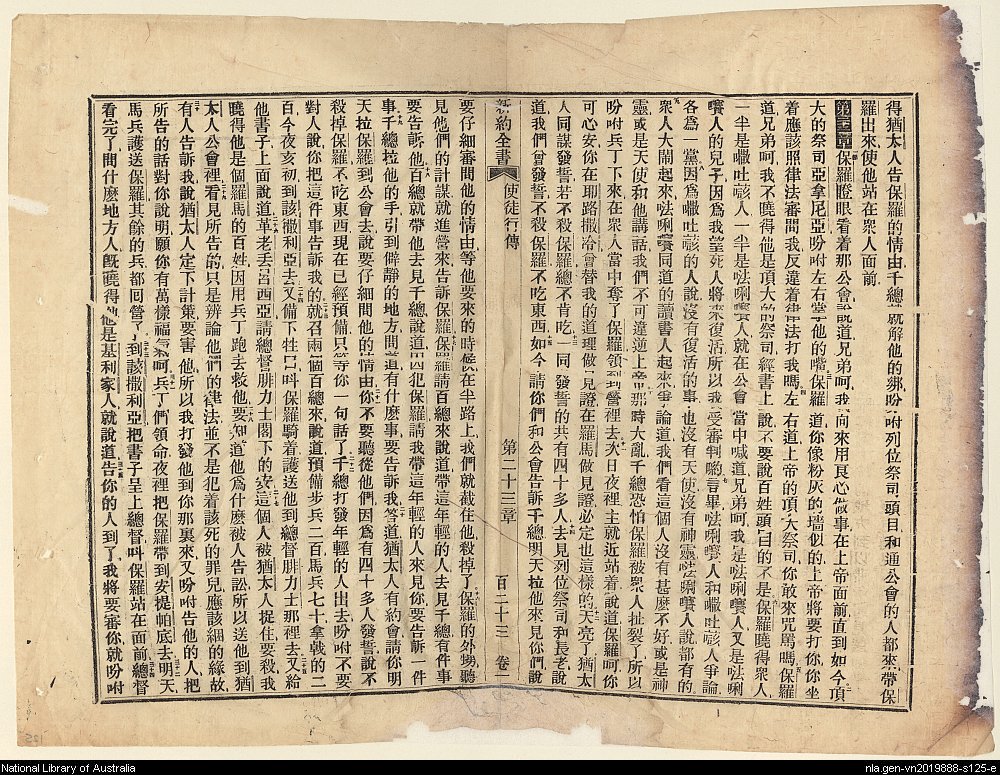 得猶太人告保羅的情由千總就解他的綁吩咐列位祭司頭目和通公會的人都來帶保
羅出來使他站在衆人面前
第二十三章保羅瞪眼看着那公會說道兄弟呵我一向來用良心做事在上帝面前直到如今頂
大的祭司亞拿尼亞吩咐左右掌他的嘴保羅道你像粉灰的墻似的上帝將要打你你坐
着應該照律法審問我反違着律法打我嗎左右道上帝的頂大祭司你敢來咒罵嗎保羅
道兄弟呵我不曉得他是頂大的祭司經書上說不要說百姓頭目的不是保羅曉得衆人
一半是㘔吐該人一半是呿唎嚽人就在公會當中喊道兄弟呵我是呿唎嚽人又是呿唎
嚽人的兒子因爲我望死人將來復活所以我受審判喲言畢呿唎嚽人和㘔吐該人爭論
各爲一黨因爲㘔吐該的人說沒有復活的事也沒有天使沒有神靈呿唎嚽人說都有的
衆人大鬧起來呿唎嚽同道的讀書人起來爭論道我們看這個人沒有甚麽不好或是神
靈或是天使和他講話我們不可違逆上帝那時大亂千總恐怕保羅被衆人扯裂了所以
吩咐兵丁下來在衆人當中奪了保羅領到營裡去次日夜裡主就近站着說道保羅呵你
可心安你在耶路撒冷會替我的道理做了見證在羅馬做見證必定也這樣的天亮了猶太
人同謀發誓若不殺保羅總不肯吃一同發誓的共有四十多人去見列位祭司和長老說
道我們曾發誓不殺保羅不吃東西如今請你們和公會告訴千總明天拉他來見你們說
新約全書 使徒行傳 第二十三章 百二十三 卷一
要仔細審問他的情由等他要來的時候在半路上我們就截住他殺掉了保羅的外甥聽
見他們的計謀就進營來告訴保羅保羅請百總來說道帶這年輕的人去見千總有件事
要告訴他百總就帶他去見千總說道囚犯保羅請我帶這年輕的人來見你要告訴一件
事千總拉他的手引到僻靜的地方問道有什麽事要告訴我答道猶太人有約會請你明
天拉保羅到公會去說要仔細問他的情由你不要聽從他們因爲有四十多人發誓說不
殺掉保羅不吃東西現在已經預備只等你一句話了千總打發年輕的人出去吩咐不要
對人說你把這件事告訴我的就召兩個百總來說道預備步兵二百馬兵七十拿戟的二
百今夜亥初到該撒利亞去又備下牲口叫保羅騎着護送他到總督腓力士那裡去又給
他書子上面說道革老丟呂西亞請總督腓力士閣下的安這個人被猶太人捉住要殺我
曉得他是個羅馬的百姓因用兵丁跑去救他要知道他爲什麽被人告訟所以送他到猶
太人公會裡看見所告的只是辨論他們的律法並不是犯着該死的罪兒應該綑的緣故
有人告訴我說猶太人定下計策要害他所以我打發他到你那裏來又吩咐告他的人把
所告的話對你說明願你有萬樣福氣呵兵丁們領命夜裡把保羅帶到安提帕底去明天
馬兵護送保羅其餘的兵都回營了到該撒利亞把書子呈上總督叫保羅站在面前總督
看完了問什麽地方人旣曉得他是基利家人就說道告你的人到了我將要審你就吩咐
125
National Library of Australia
nla.gen-vn2019888-s125-e